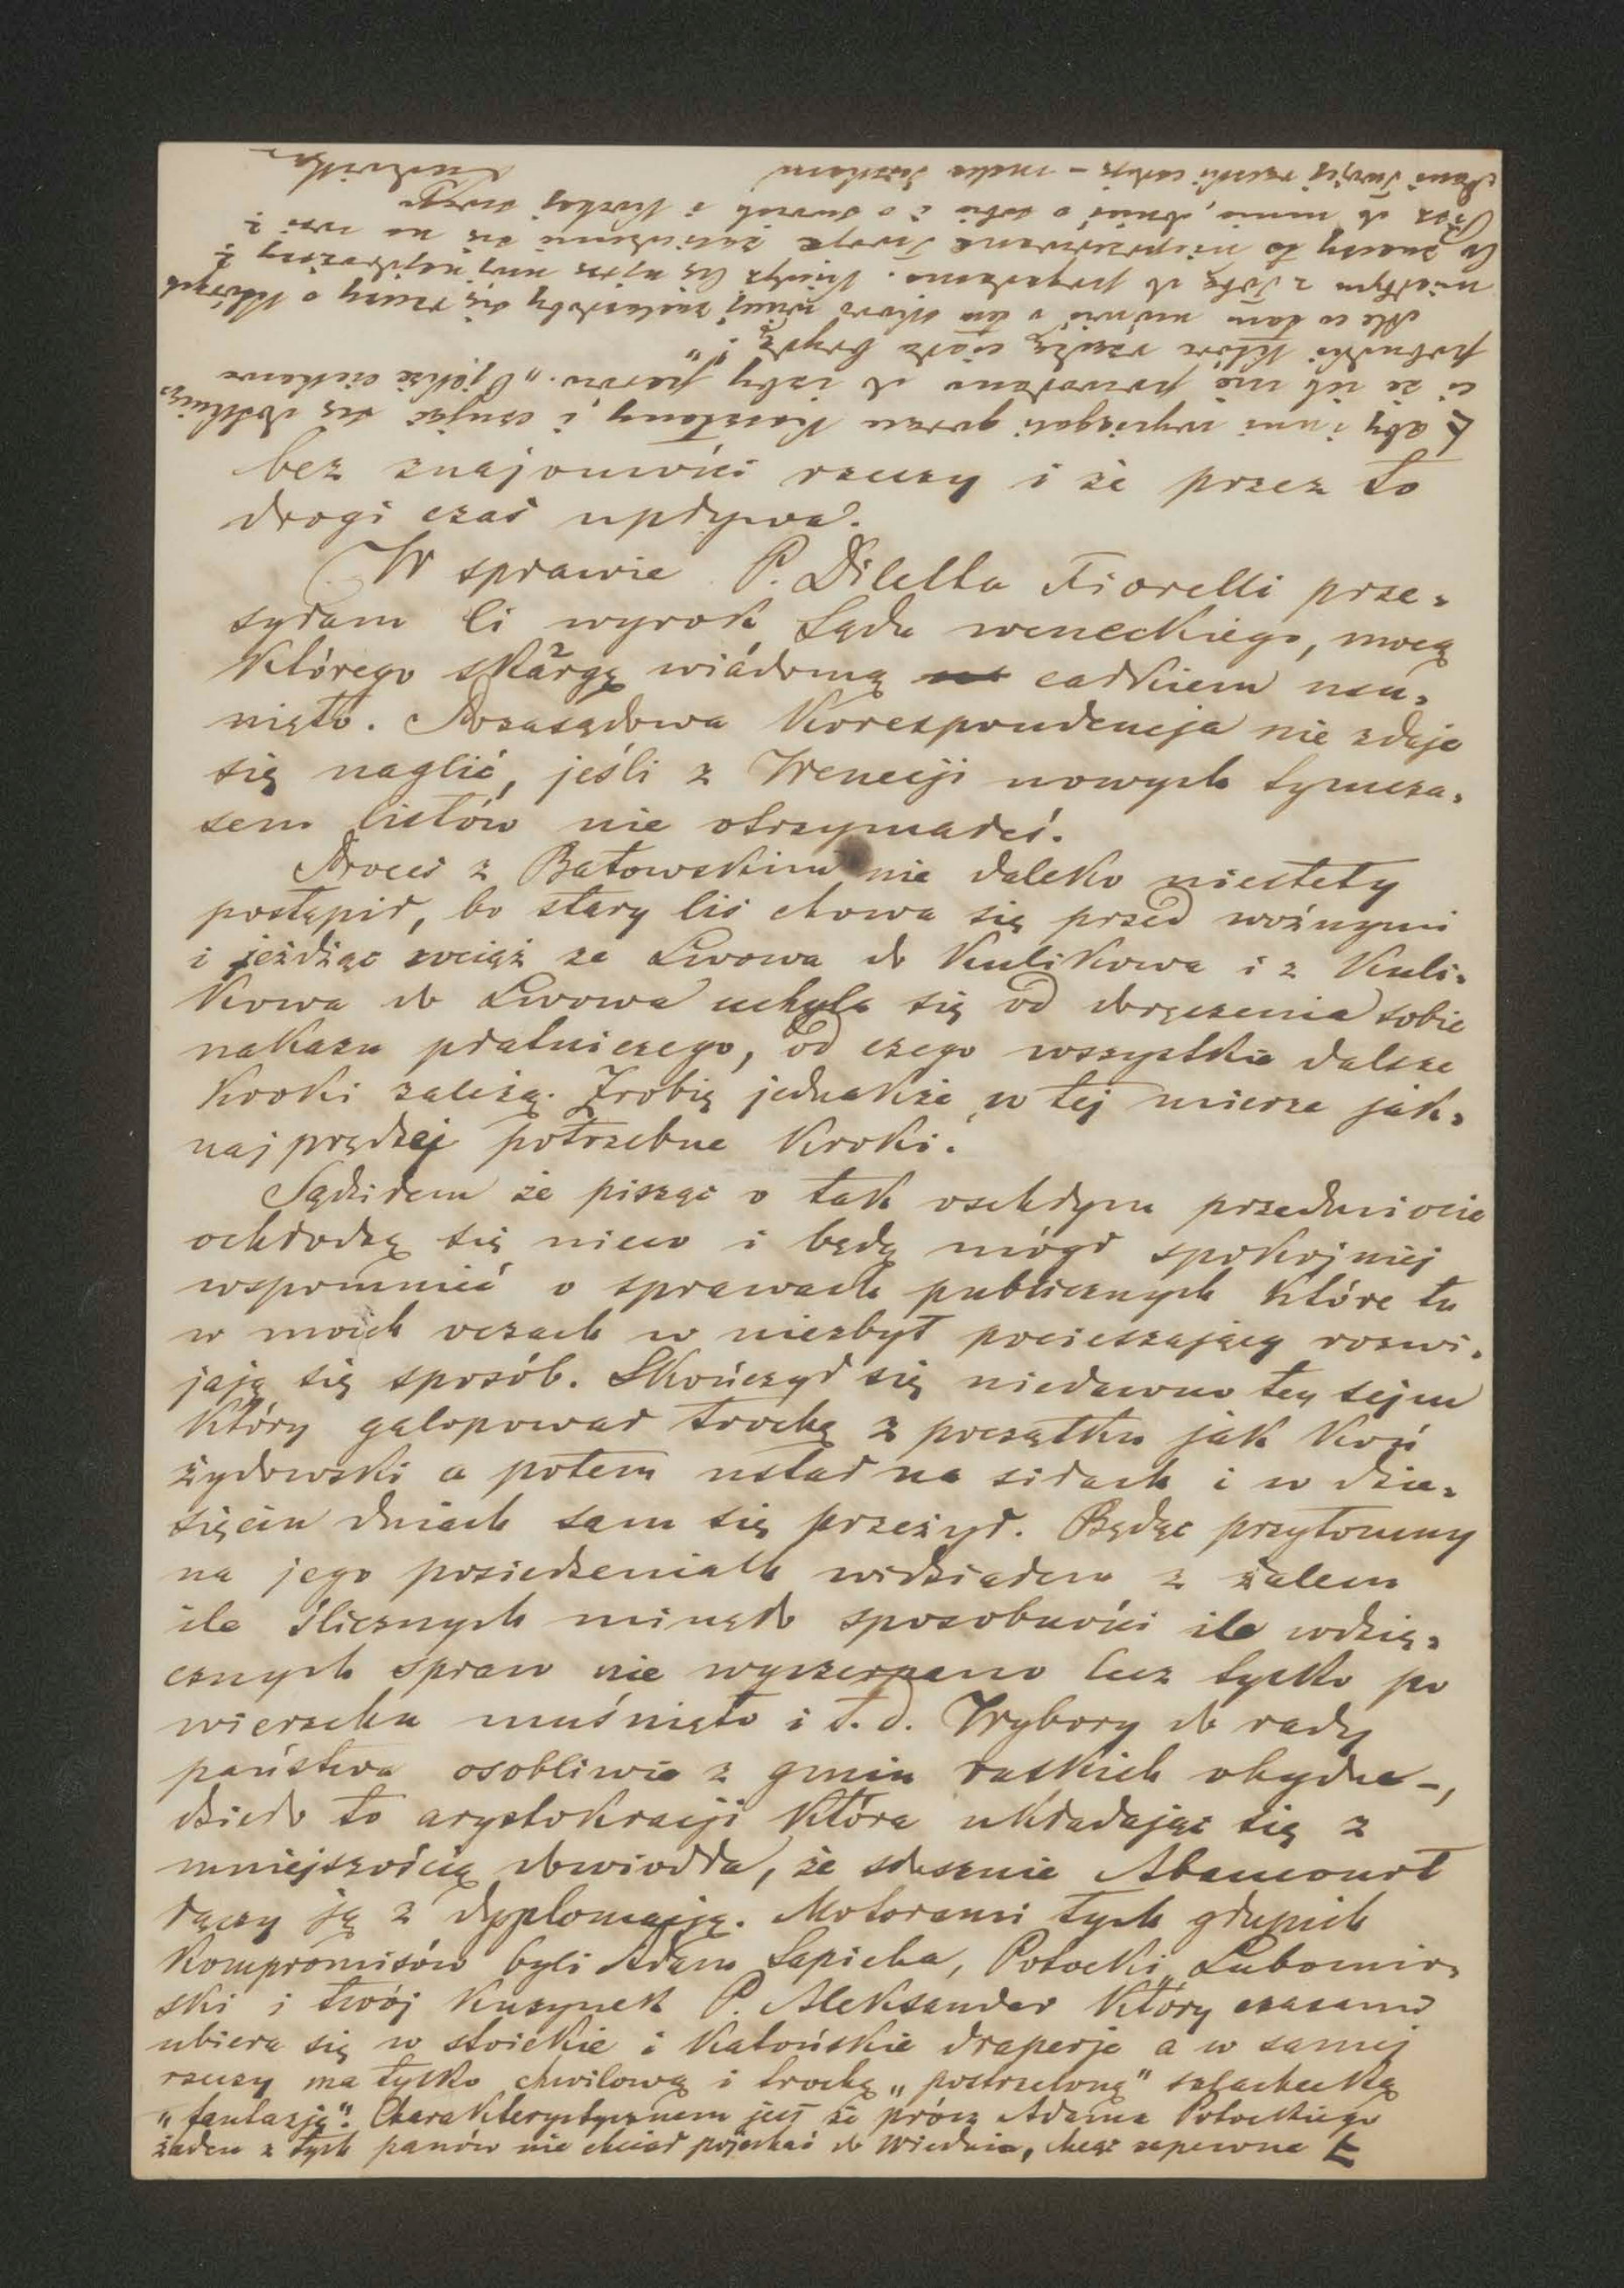 bez znajomości rzeczy i że przez to
drogi czas upływa.
W sprawie P. Diletta Fiorelli prze-
syłam Ci wyrok Sądu weneckiego, mocą
którego skargę wiádomą całkiem usu-
nięto. Pozasądowa Korespondencja nie zdaje
się naglić, jeśli z Wenecji nowych tymcza-
sem listów nie otrzymałeś.
Proces z Batowskim nie daleko niestety
postąpił, bo stary lis chowa się przed woźnymi
i jeżdżąc wciąż ze Lwowa do Kulikowa i z Kuli-
kowa do Lwowa uchyla się od doręczenia sobie
nakazu płatniczego, od czego wszystkie dalsze
kroki zależą. Zrobię jednakże w tej mierze jak-
najprędzej potrzebne kroki.
Sądziłem że pisząc o tak oschłym przedmiocie
ochłodzę się nieco i będę mógł spokojniej
wspomnieć o sprawach publicznych które tu
w moich oczach w niezbyt pocieszający rozwi-
jają się sposób. Skończył się niedawno ten sejm
który galopował trochę z początku jak koń
żydowski a potem ustał na siłach i w dzie-
sięciu dniach sam się przeżył. Będąc przytomny
na jego posiedzeniach widziałem z żalem
ile ślicznych minęło sposobności ile wdzię-
cznych spraw nie wyczerpano lecz tylko po
wierzchu muśnięto i t. d. Wybory do rady
państwa osobliwie z gmin ruskich ohydne -,
dzieło to arystokracji która układając się z
mniejszością dowiodła, że słusznie Abancourt
łączy ją z dyplomacją. Motorami tych głupich
kompromisów byli Adam Sapieha, Potocki, Lubomir-
ski i twój kuzynek P. Aleksander który czasami
ubiera się w stoickie i katońskie draperje a w samej
rzeczy ma tylko chwilową i trochę „postrzeloną" szlachecką
„fantazję". Charakterystycznem jest że prócz Adama Potockiego
żaden z tych panów nie chciał pojechać do Wiednia, chcąc zapewne
aby inni wyciągali gorące kasztany, i czując się dotknię-
ci że ich nie powołano do izby panów. „O jakże ciekawe
pobudki które rządzą ciała brydzą!"
Ale co tam mówić o tem skoro więcej znalazłoby się rzeczy o których
miałbym z Tobą do pogadania. Kiedyż Cię ujrzę mój najdroższy?
Co znaczy to nieprzerwane Twoje zasiedzenie się na wsi?
Pisz do mnie, donieś o sobie i o swoich i kochaj swego
Pani Twojej rączki całuję – maleńka
Ludwika